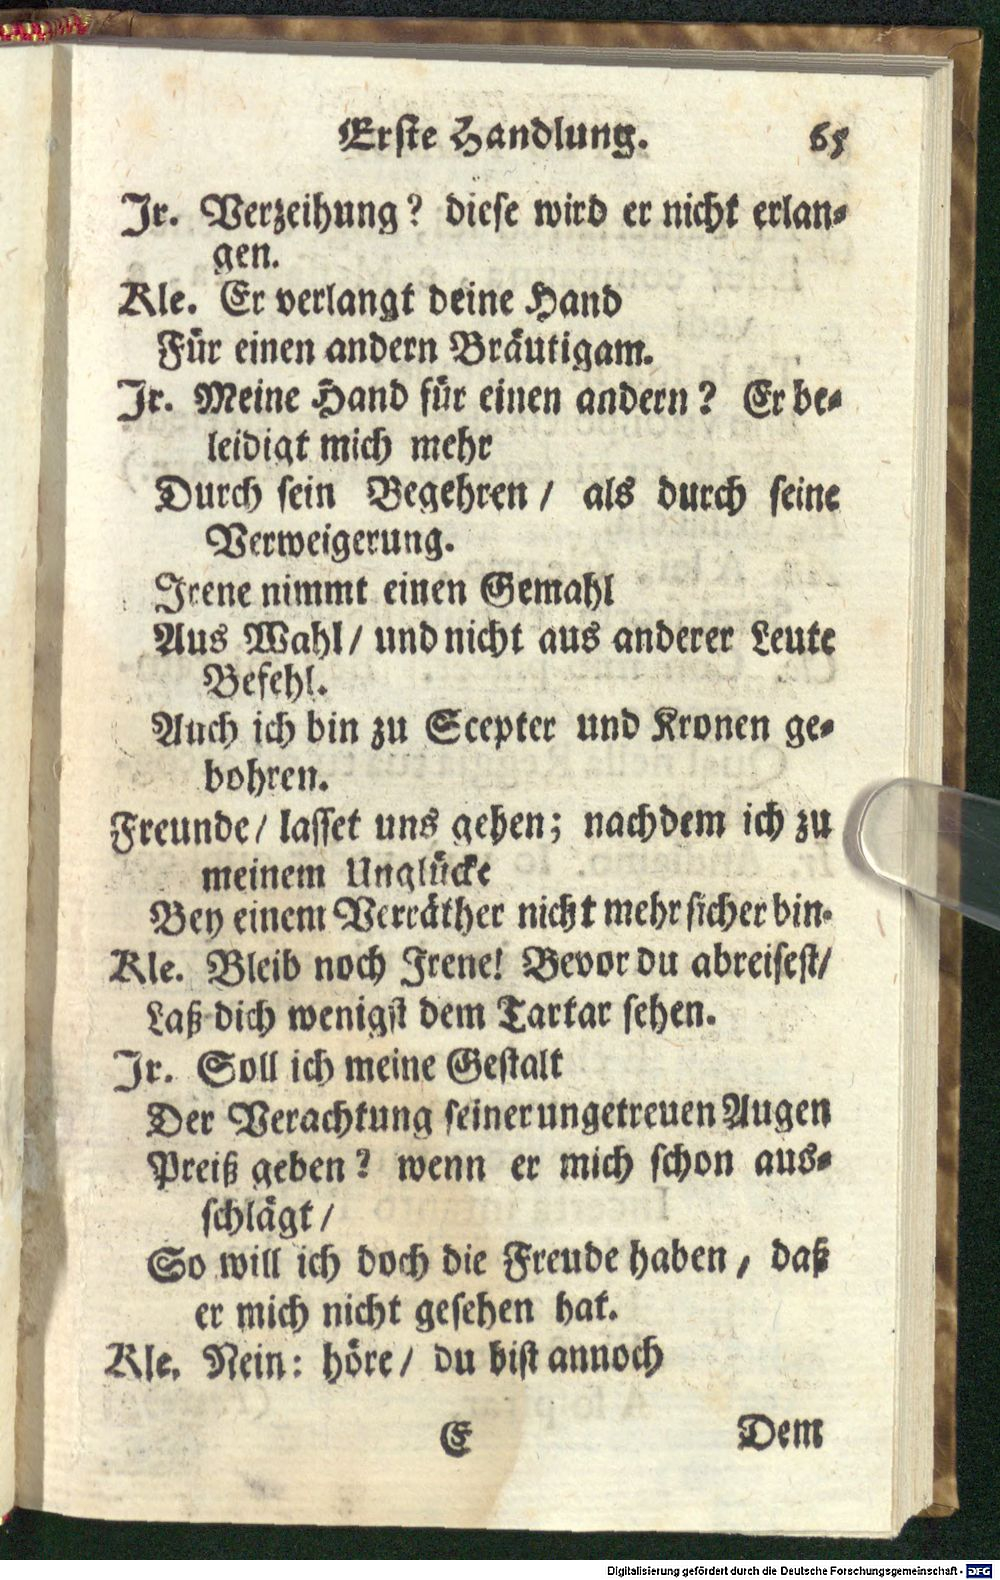 Erste Handlung. 65
Ir. Verzeihung? diese wird er nicht erlan-
gen.
Kle. Er verlangt deine Hand
Für einen andern Bräutigam.
Ir. Meine Hand für einen andern? Er be-
leidigt mich mehr
Durch sein Begehren / als durch seine
Verweigerung.
Irene nimmt einen Gemahl
Aus Wahl / und nicht aus anderer Leute
Befehl.
Auch ich bin zu Scepter und Kronen ge-
bohren.
Freunde / lasset uns gehen; nachdem ich zu
meinem Unglücke
Bey einem Verräther nicht mehr sicher bin.
Kle. Bleib noch Irene! Bevor du abreisest /
Laß dich wenigst dem Tartar sehen.
Ir. Soll ich meine Gestalt
Der Verachtung seiner ungetreuen Augen
Preiß geben? wenn er mich schon aus-
schlägt /
So will ich doch die Freude haben, daß
er mich nicht gesehen hat.
Kle. Nein: höre / du bist annoch
E Dem
Digitalisierung gefördert durch die Deutsche Forschungsgemeinschaft - DFG